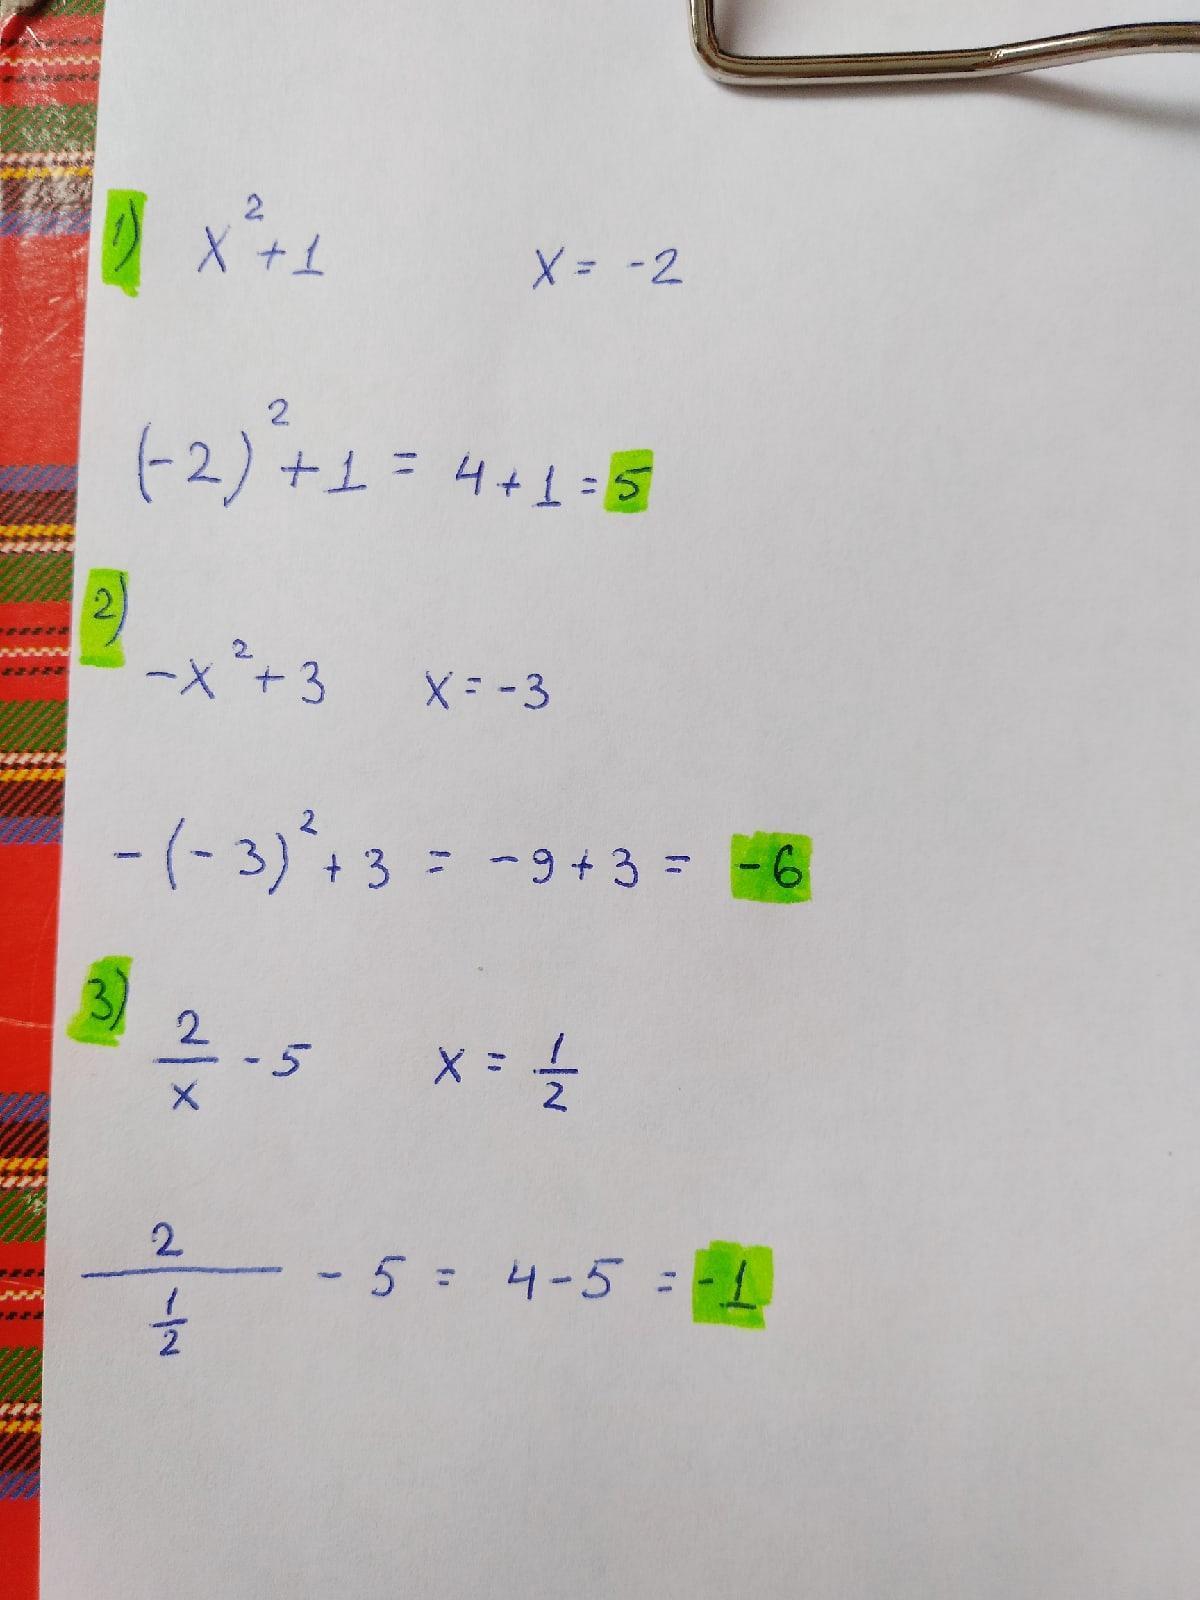 1) x² + 1 x = -2
(-2)² + 1 = 4 + 1 = 5
2)
-x² + 3 x = -3
-(-3)² + 3 = -9 + 3 = -6
3)
2/x - 5 x = 1/2
2/(1/2) - 5 = 4 - 5 = -1